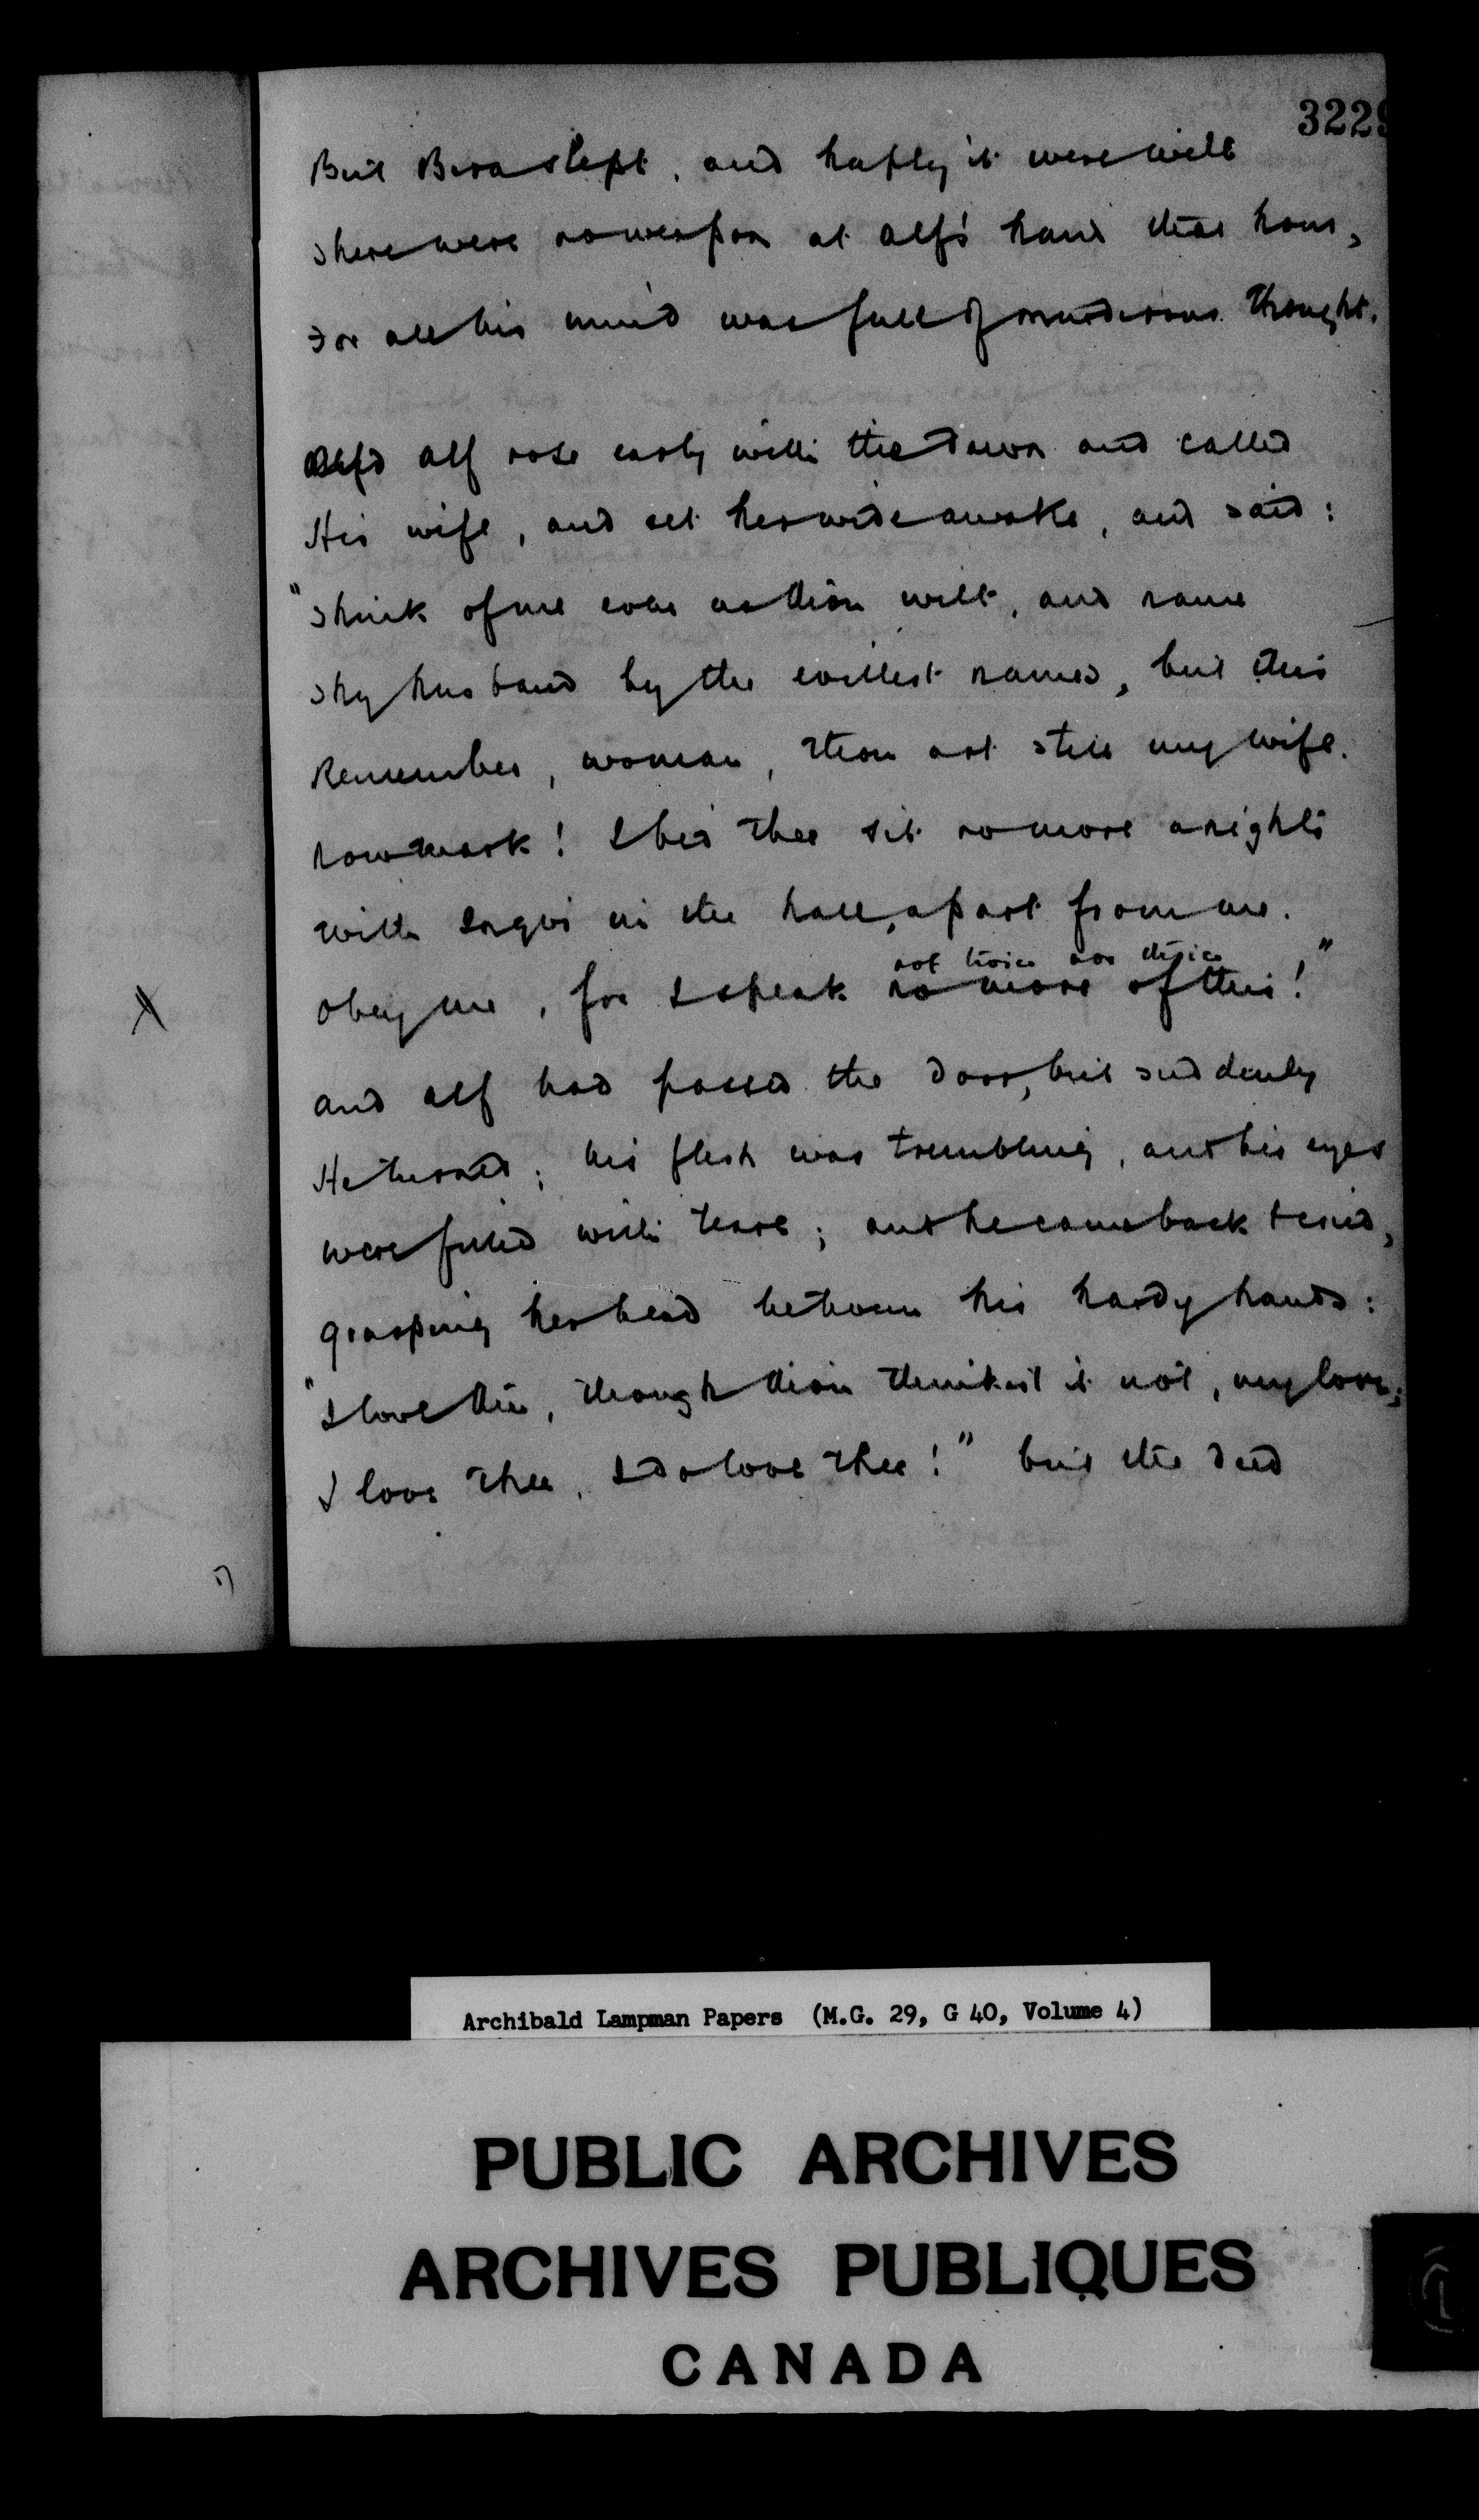 3229
But Bera slept, and haply it were well
There were no weapon at Alf's hand that hour,
For all his mind was full of murderous thought.
And Alf rose early with the dawn and called
His wife, and set her wide awake, and said:
"Think of me even as thou wilt, and name
Thy husband by the evillest names, but this
Remember, woman, thou art still my wife.
Now mark! I bid thee sit no more anights
With Ingvi in the hall, apart from me.
not twice nor thrice
Obey me, for I speak no more of this!"
And Alf had passed the door, but suddenly
He turned; his flesh was trembling, and his eyes
Were filled with tears; and he came back & cried,
Grasping her head between his hardy hands:
"I love thee, though thou thinkest it not, my love;
I love thee, I do love thee!" but the deed
X
Archibald Lampman Papers (M.G. 29, G 40, Volume 4)
PUBLIC ARCHIVES
ARCHIVES PUBLIQUES
CANADA